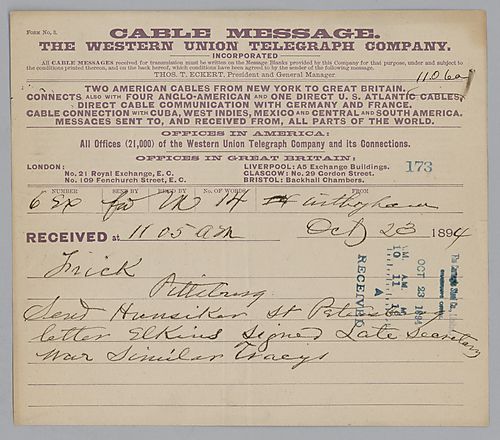 FORM No. 3.
CABLE MESSAGE.
THE WESTERN UNION TELEGRAPH COMPANY.
INCORPORATED
All CABLE MESSAGES received for transmission must be written on the Message Blanks provided by this Company for that purpose, under and subject to the conditions printed thereon, and on the back hereof, which conditions have been agreed to by the sender of the following message.
THOS. T. ECKERT, President and General Manager
1106a
TWO AMERICAN CABLES FROM NEW YORK TO GREAT BRITAIN.
CONNECTS ALSO WITH FOUR ANGLO-AMERICAN AND ONE DIRECT U.S. ATLANTIC CABLES.
DIRECT CABLE COMMUNICATION WITH GERMANY AND FRANCE.
CABLE CONNECTION WITH CUBA, WEST INDIES, MEXICO AND CENTRAL AND SOUTH AMERICA.
MESSAGES SENT TO, AND RECEIVED FROM, ALL PARTS OF THE WORLD.
OFFICES IN AMERICA:
All Offices (21,000) of the Western Union Telegraph Company and its Connections.
OFFICES IN GREAT BRITAIN:
LONDON:
No. 21 Royal Exchange, E. C.
No. 109 Fenchurch Street, E. C.
LIVERPOOL: A5 Exchange Buildings.
GLASGOW: No. 29 Gordon Street.
BRISTOL: Backhall Chambers.
173
NUMBER SENT BY REC'D BY No. OF WORDS FROM
6 14
RECEIVED at 11 05 am Oct 23 1894
Frick
Pittsburg
Send Hunsiker St Petersburg
letter Elkins signed Late Secretary
War Similar Tracys
RECEIVED
OCT 23 1894